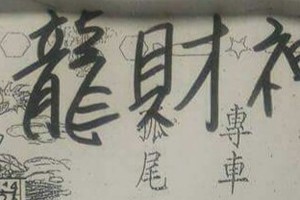 龍財神
狐尾
專車